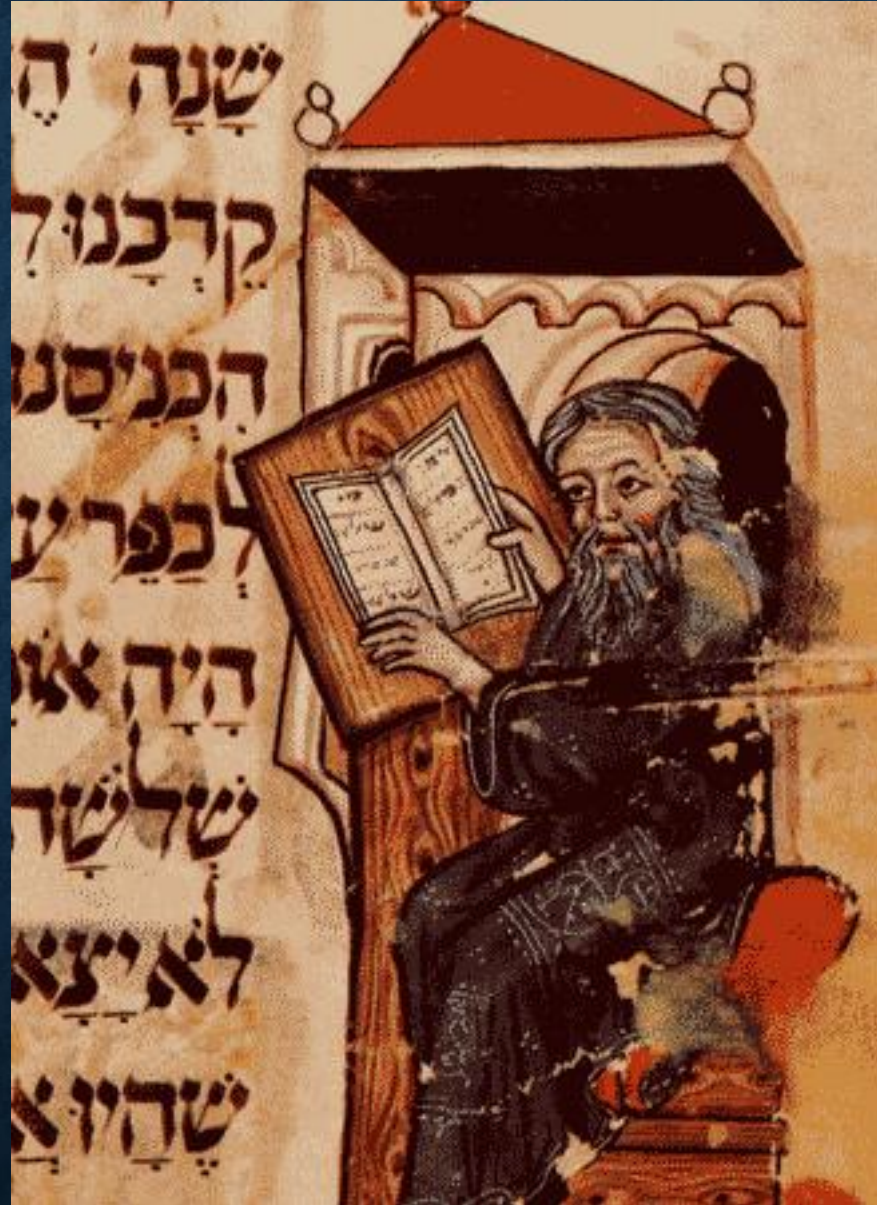 שָׁנָה הֶ
קֵרְבָנוּ לִ
הִכְנִיסָנוּ
לְכַפֵּר עַ
הָיָה אוֹ
שְׁלֹשָׁה
לֹא יָצָא
שֶׁהָיוּ אֲ